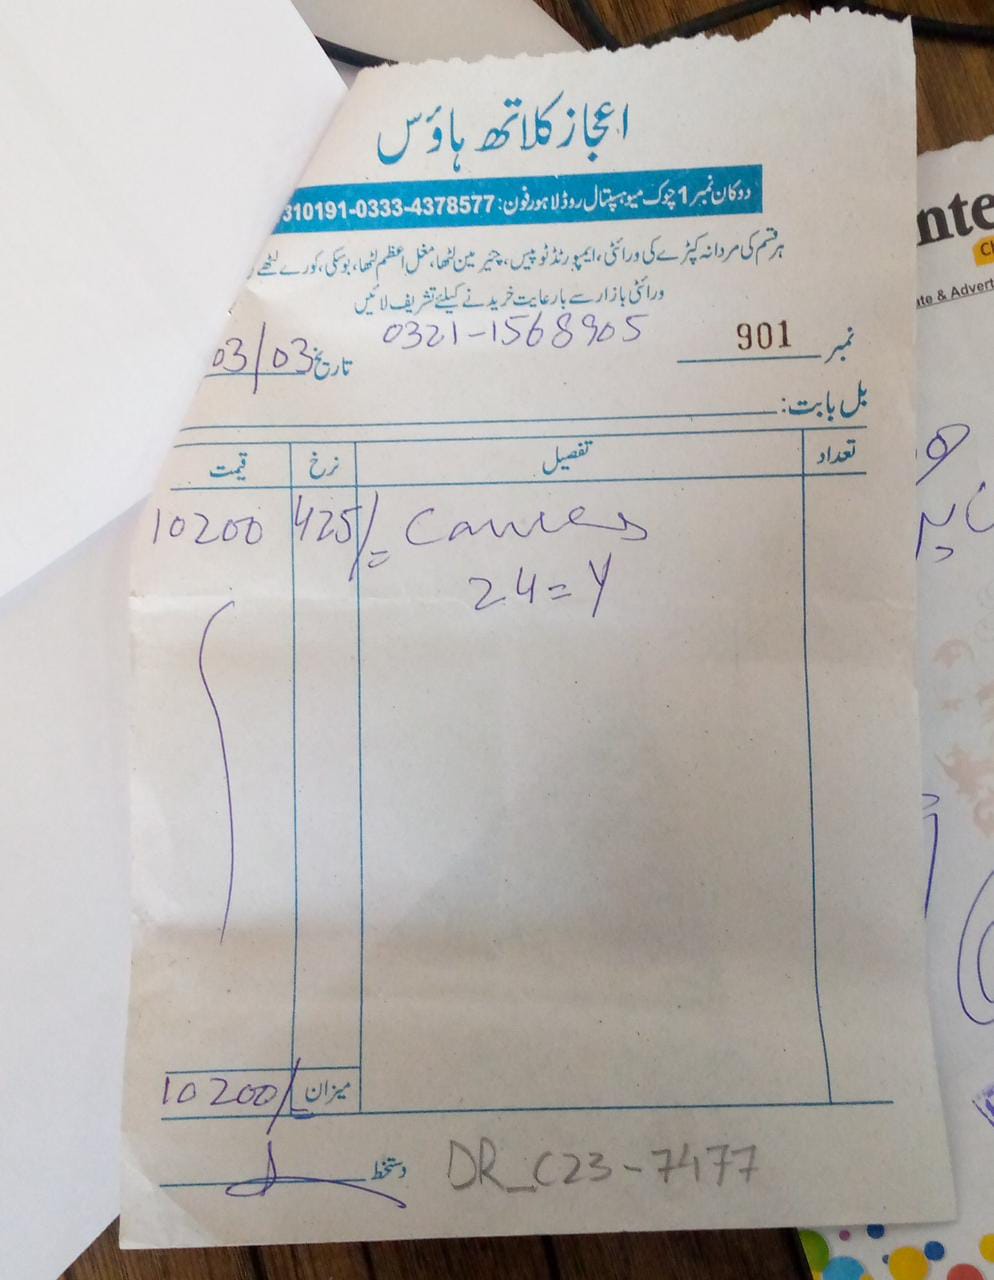 اعجاز کلاتھ ہاؤس
دوکان نمبر 1 چوک میو ہسپتال روڈ لاہور فون: 310191-0333-4378577
ہر قسم کی مردانہ کپڑے کی ورائٹی، ایمپورٹڈ ٹو پیس، چیئرمین لٹھا، مغل اعظم لٹھا، بوسکی، کورے لٹھے
ورائٹی بازار سے بارعایت خریدنے کیلئے تشریف لائیں
0321-1568905
نمبر 901
تاریخ 03/03
بل بابت:
تعداد تفصیل نرخ قیمت
10200 425/= Canvas
24=Y
میزان 10200/=
دستخط
DR_C23-7477
nte
ate & Advert